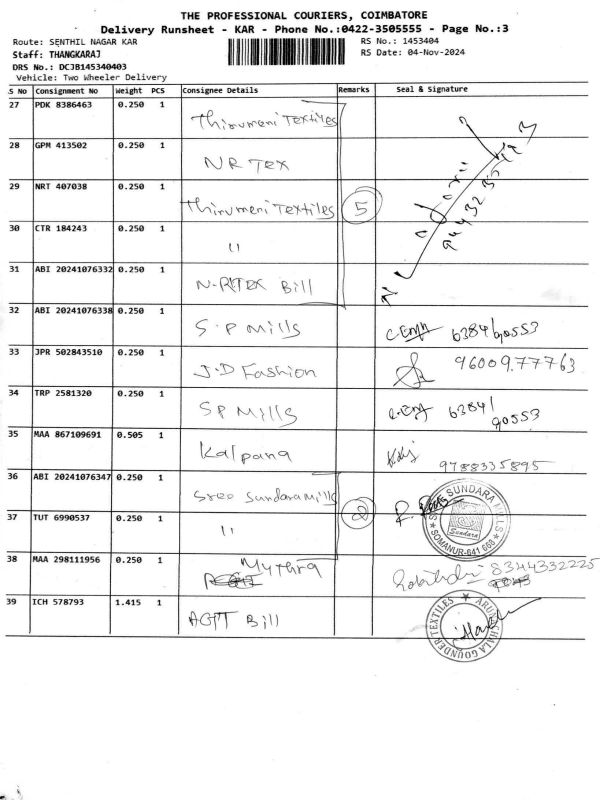 THE PROFESSIONAL COURIERS, COIMBATORE
Delivery Runsheet - KAR - Phone No.:0422-3505555 - Page No.:3
Route: SENTHIL NAGAR KAR RS No.: 1453404
Staff: THANGKARAJ RS Date: 04-Nov-2024
DRS No.: DCJB145340403
Vehicle: Two Wheeler Delivery
S No Consignment No Weight PCS Consignee Details Remarks Seal & Signature
27 PDK 8386463 0.250 1 Thirumeni Textiles
28 GPM 413502 0.250 1 NR Tex
29 NRT 407038 0.250 1 Thirumeni Textiles 5
30 CTR 184243 0.250 1 "
31 ABI 20241076332 0.250 1 N-RTEX Bill
32 ABI 20241076338 0.250 1 S.P Mills 63841 90553
33 JPR 502843510 0.250 1 J.D Fashion 9600977763
34 TRP 2581320 0.250 1 SP Mills 63841
90553
35 MAA 867109691 0.505 1 Kalpana 9788335895
36 ABI 20241076347 0.250 1 Sree Sundara Mills
SUNDARA MILLS
Sundara
SOMANUR-641 668
37 TUT 6990537 0.250 1 " 2
38 MAA 298111956 0.250 1 Mythra 8344332225
39 ICH 578793 1.415 1 AGTT Bill
ARUNACHALA GOUNDER TEXTILES